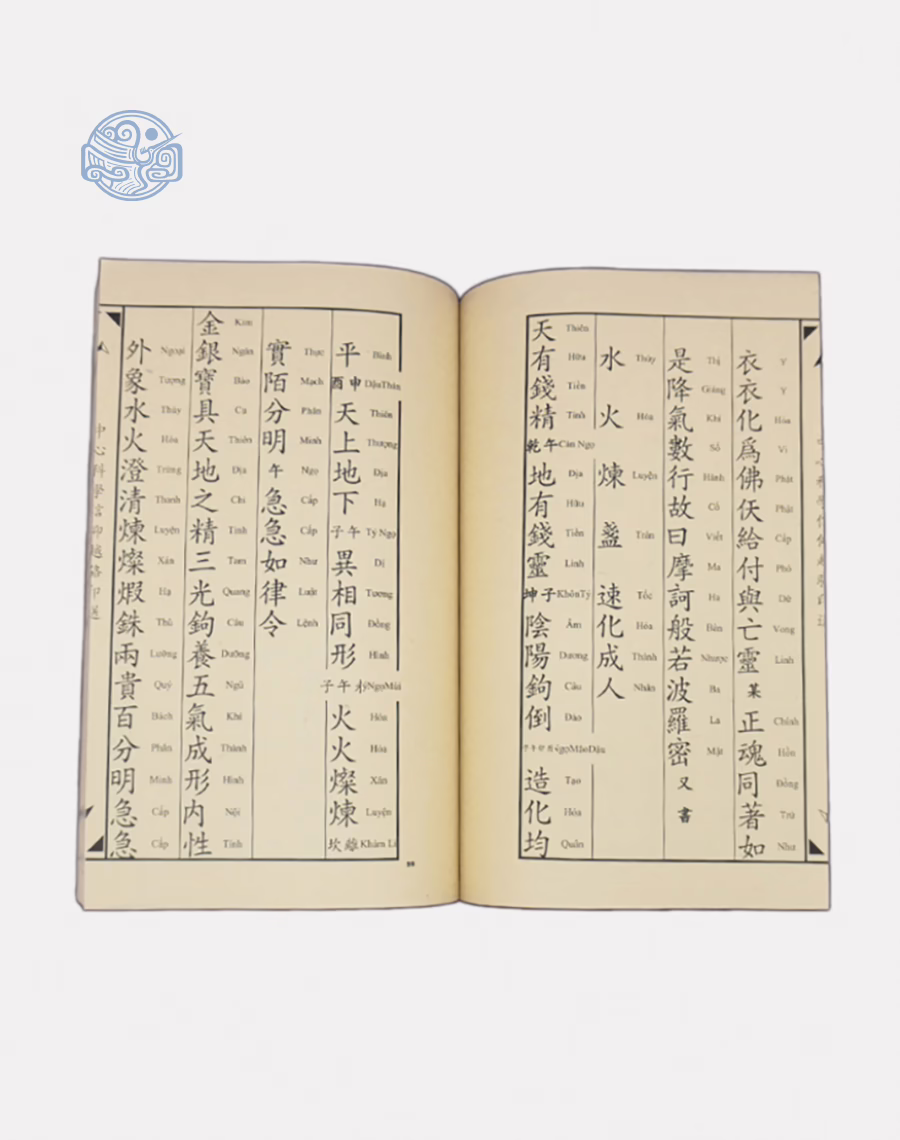 衣衣化爲佛仸給付與亡靈某正魂同著如
Y Y Hóa Vi Phật Phật Cấp Phó Dữ Vong Linh Chính Hồn Đồng Trứ Như
是降氣數行故曰摩訶般若波羅密又書
Thị Giáng Khí Số Hành Cố Viết Ma Ha Bản Nhược Ba La Mật
水火煉盞速化成人
Thủy Hỏa Luyện Trản Tốc Hóa Thành Nhân
天有錢精乾午地有錢靈坤子陰陽鉤倒子午卯酉造化均
Thiên Hữu Tiền Tinh Càn Ngọ Địa Hữu Tiền Linh Khôn Tý Âm Dương Câu Đảo NgọMãoDậu Tạo Hóa Quân
平酉申天上地下子午異相同形子午火火燦煉坎離
Bình DậuThân Thiên Thượng Địa Hạ Tý Ngọ Dị Tương Đồng Hình NgọMùi Hỏa Hỏa Xán Luyện Khảm Li
實陌分明午急急如律令
Thực Mạch Phân Minh Ngọ Cấp Cấp Như Luật Lệnh
金銀寶具天地之精三光鉤養五氣成形内性
Kim Ngân Bảo Cụ Thiên Địa Chi Tinh Tam Quang Câu Dưỡng Ngũ Khí Thành Hình Nội Tính
外象水火澄清煉燦煆銖兩貴百分明急急
Ngoại Tượng Thủy Hỏa Trừng Thanh Luyện Xán Hạ Thù Lưỡng Quý Bách Phân Minh Cấp Cấp